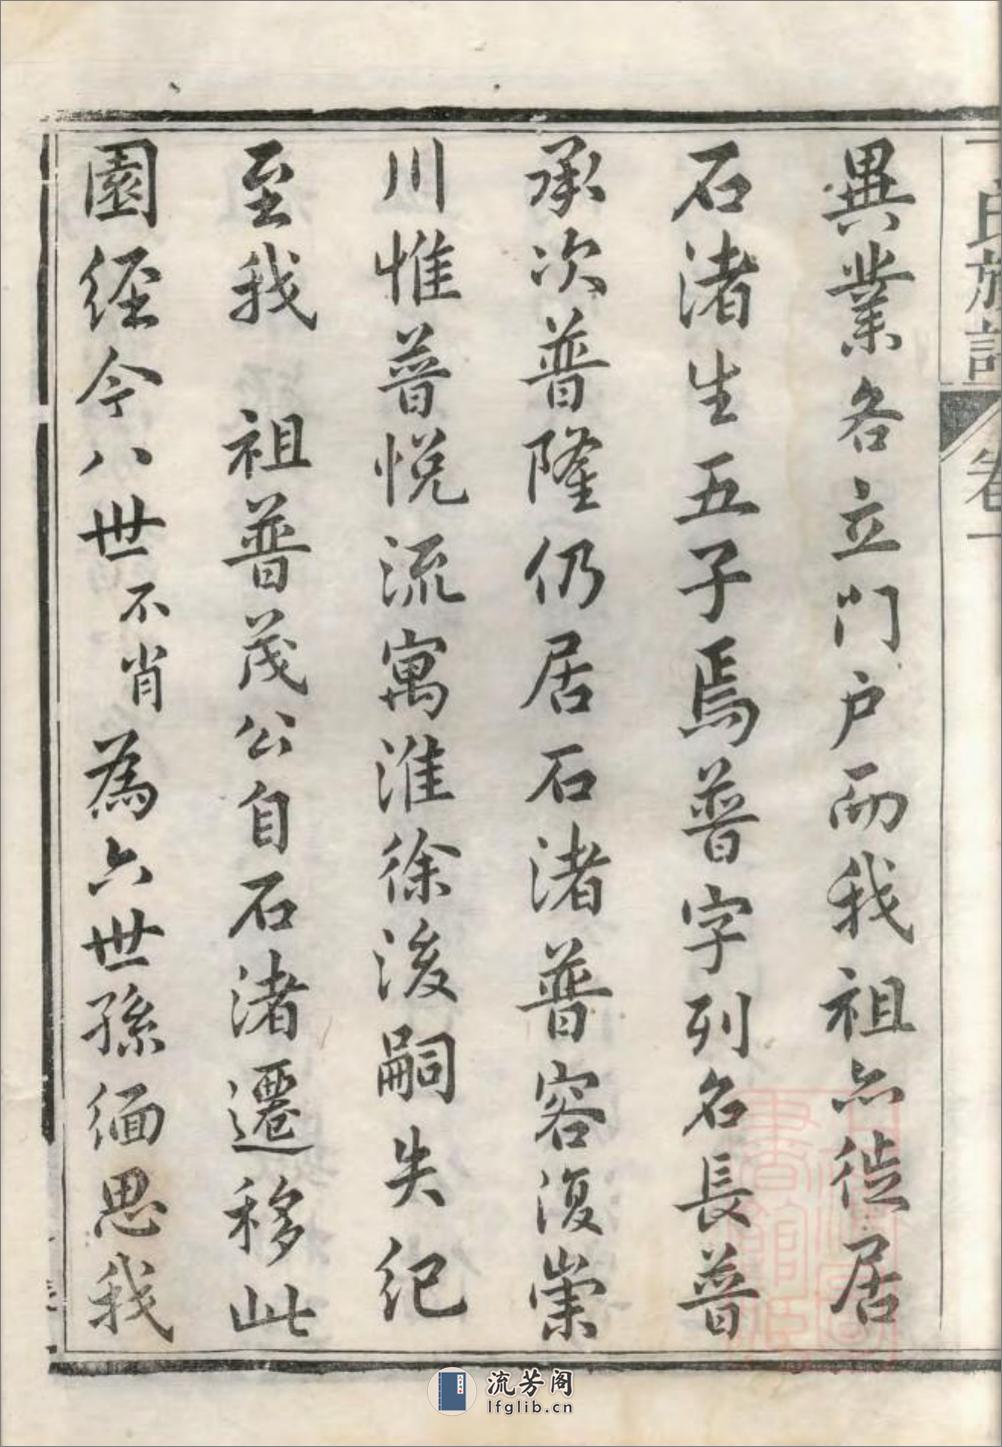 異業各立門户而我祖亦徙居
石渚生五子焉普字列名長普
承次普隆仍居石渚普容復崇
川惟普悦流寓淮徐後嗣失紀
至我 祖普茂公自石渚遷移此
園經今八世不肖為六世孫緬思我
氏族譜 卷一
流芳阁
lfglib.cn